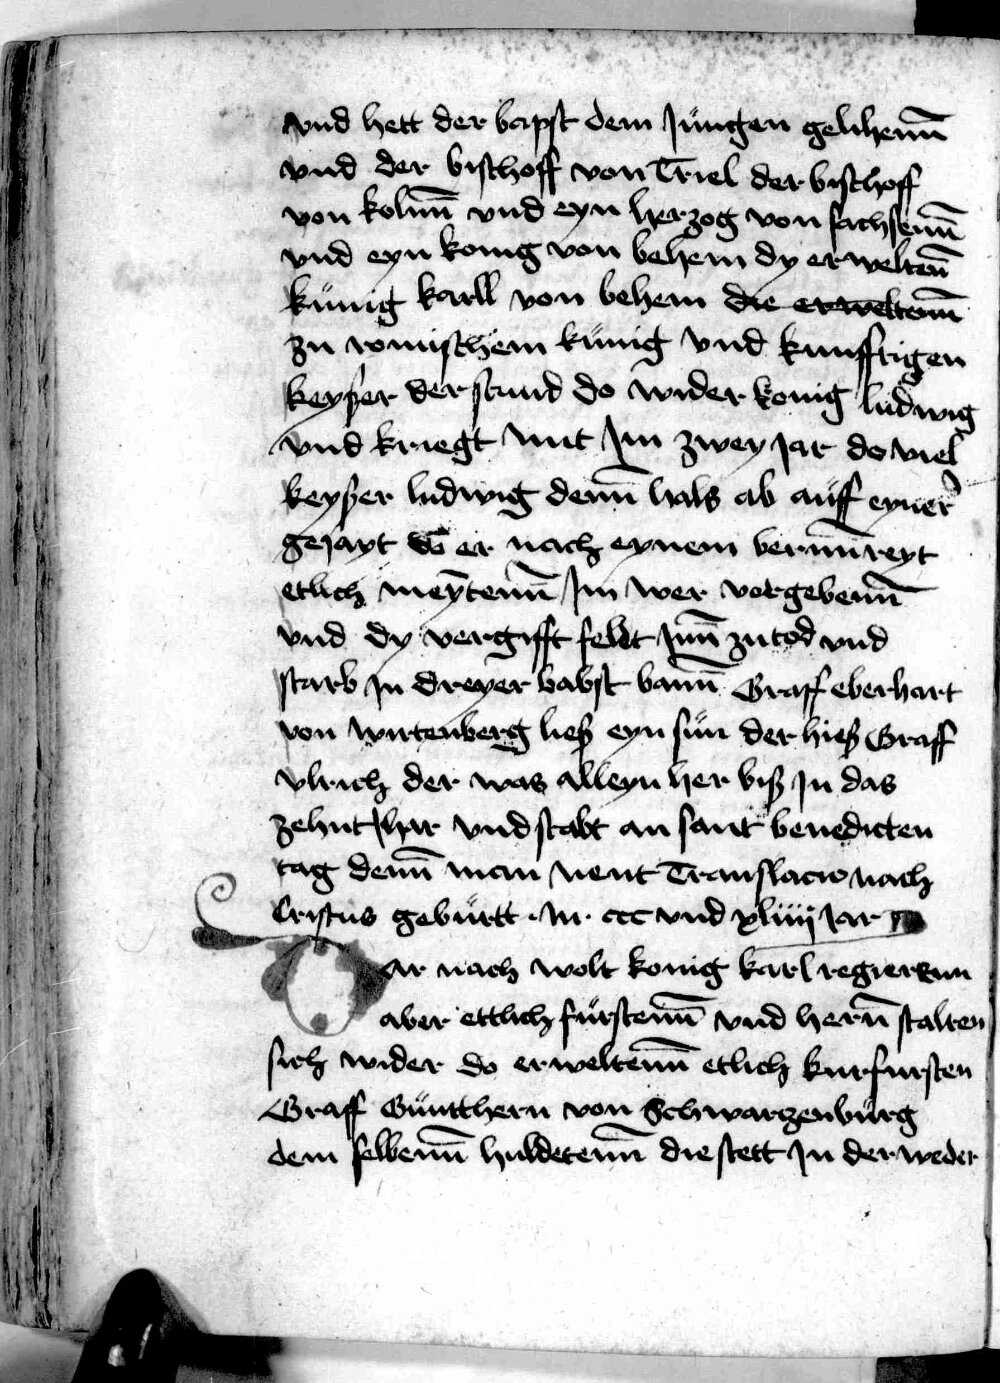 vnd hett der bapst dem Jüngen gelihenn̄
vnd der bischoff von Triel der bischoff
von kolnn̄ vnd eyn herzog von sachsenn̄
vnd eyn konig von behem dy erweltenn̄
künig karll von behem die erweltenn̄
zu romischem künig vnd kunfftigen
keyßer der stund do wider konig ludwig
vnd kriegt mit Im zwey Jar do viel
keyßer ludwig denn̄ hals ab auff eyner
gejayt do er nach eynem bernn̄ reyt
etlich meyntenn̄ Im wer vorgebenn̄
vnd dy vergifft felet Inn̄ zu tod vnd
starb In dreyer babst bann̄ Graff eberhart
von wirtenberg ließ eyn sün der hieß Graff
vlrich der was alleyn her biß In das
zehnt Jhar vnd stabt an sant benedicten
tag denn̄ man nent Translacio nach
Cristus gebürtt · M · ccc vnd xliiij Jar
Dar nach wolt konig karl regierenn
aber ettlich fürstenn̄ vnd hern̄ stalten
sich wider do erweltenn̄ etlich kurfursten
Graff Güntthern von Schwarzenbürg
dem selbenn̄ huldetenn̄ die stett In der weder